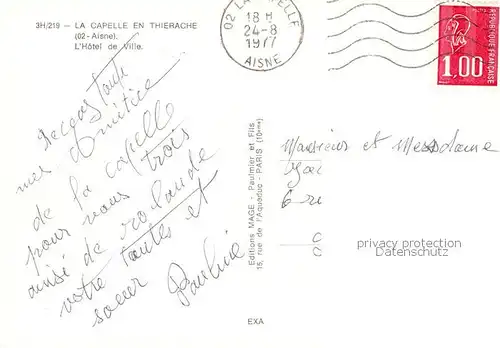 3H/219 - LA CAPELLE EN THIERACHE
(02-Aisne).
L'Hôtel de Ville.
02 LA CAPELLE
18 H
24-8
1977
AISNE
RÉPUBLIQUE FRANÇAISE
1,00
mes amitiés
de la capelle
pour vous trois
ainsi de
votre tantes et
soeur Pauline
Editions MAGE - Paulmier et Fils
15, rue de l'Aqueduc - PARIS (10ème)
Messieurs et Messdame
privacy protection
Datenschutz
EXA